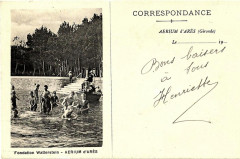 Fondation Wallerstein - AERIUM d'ARÈS
CORRESPONDANCE
AERIUM d'ARÈS (Gironde)
Le 19
Bons baisers
à tous
Henriette